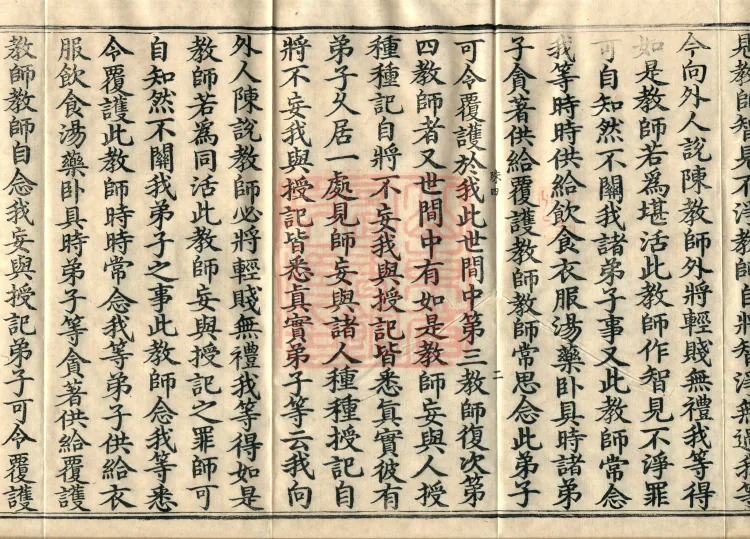 見教師智見不活教師自將知活無過我等
今向外人說陳教師外將輕賤無禮我等得
如是教師若爲堪活此教師作智見不淨罪
可自知然不關我諸弟子事又此教師常念
我等時時供給飲食衣服湯藥卧具時諸弟
子貪著供給覆護教師教師常思念此弟子
四 二
可令覆護於我此世間中第三教師復次第
四教師者又世間中有如是教師妄與人授
種種記自將不妄我與授記皆悉眞實彼有
弟子久居一處見師妄與諸人種種授記自
將不妄我與授記皆悉眞實弟子等云我向
外人陳說教師必將輕賤無禮我等得如是
教師若為同活此教師妄與授記之罪師可
自知然不關我弟子之事此教師念我等悉
令覆護此教師時時常念我等弟子供給衣
服飲食湯藥卧具時弟子等貪著供給覆護
教師教師自念我妄與授記弟子可令覆護